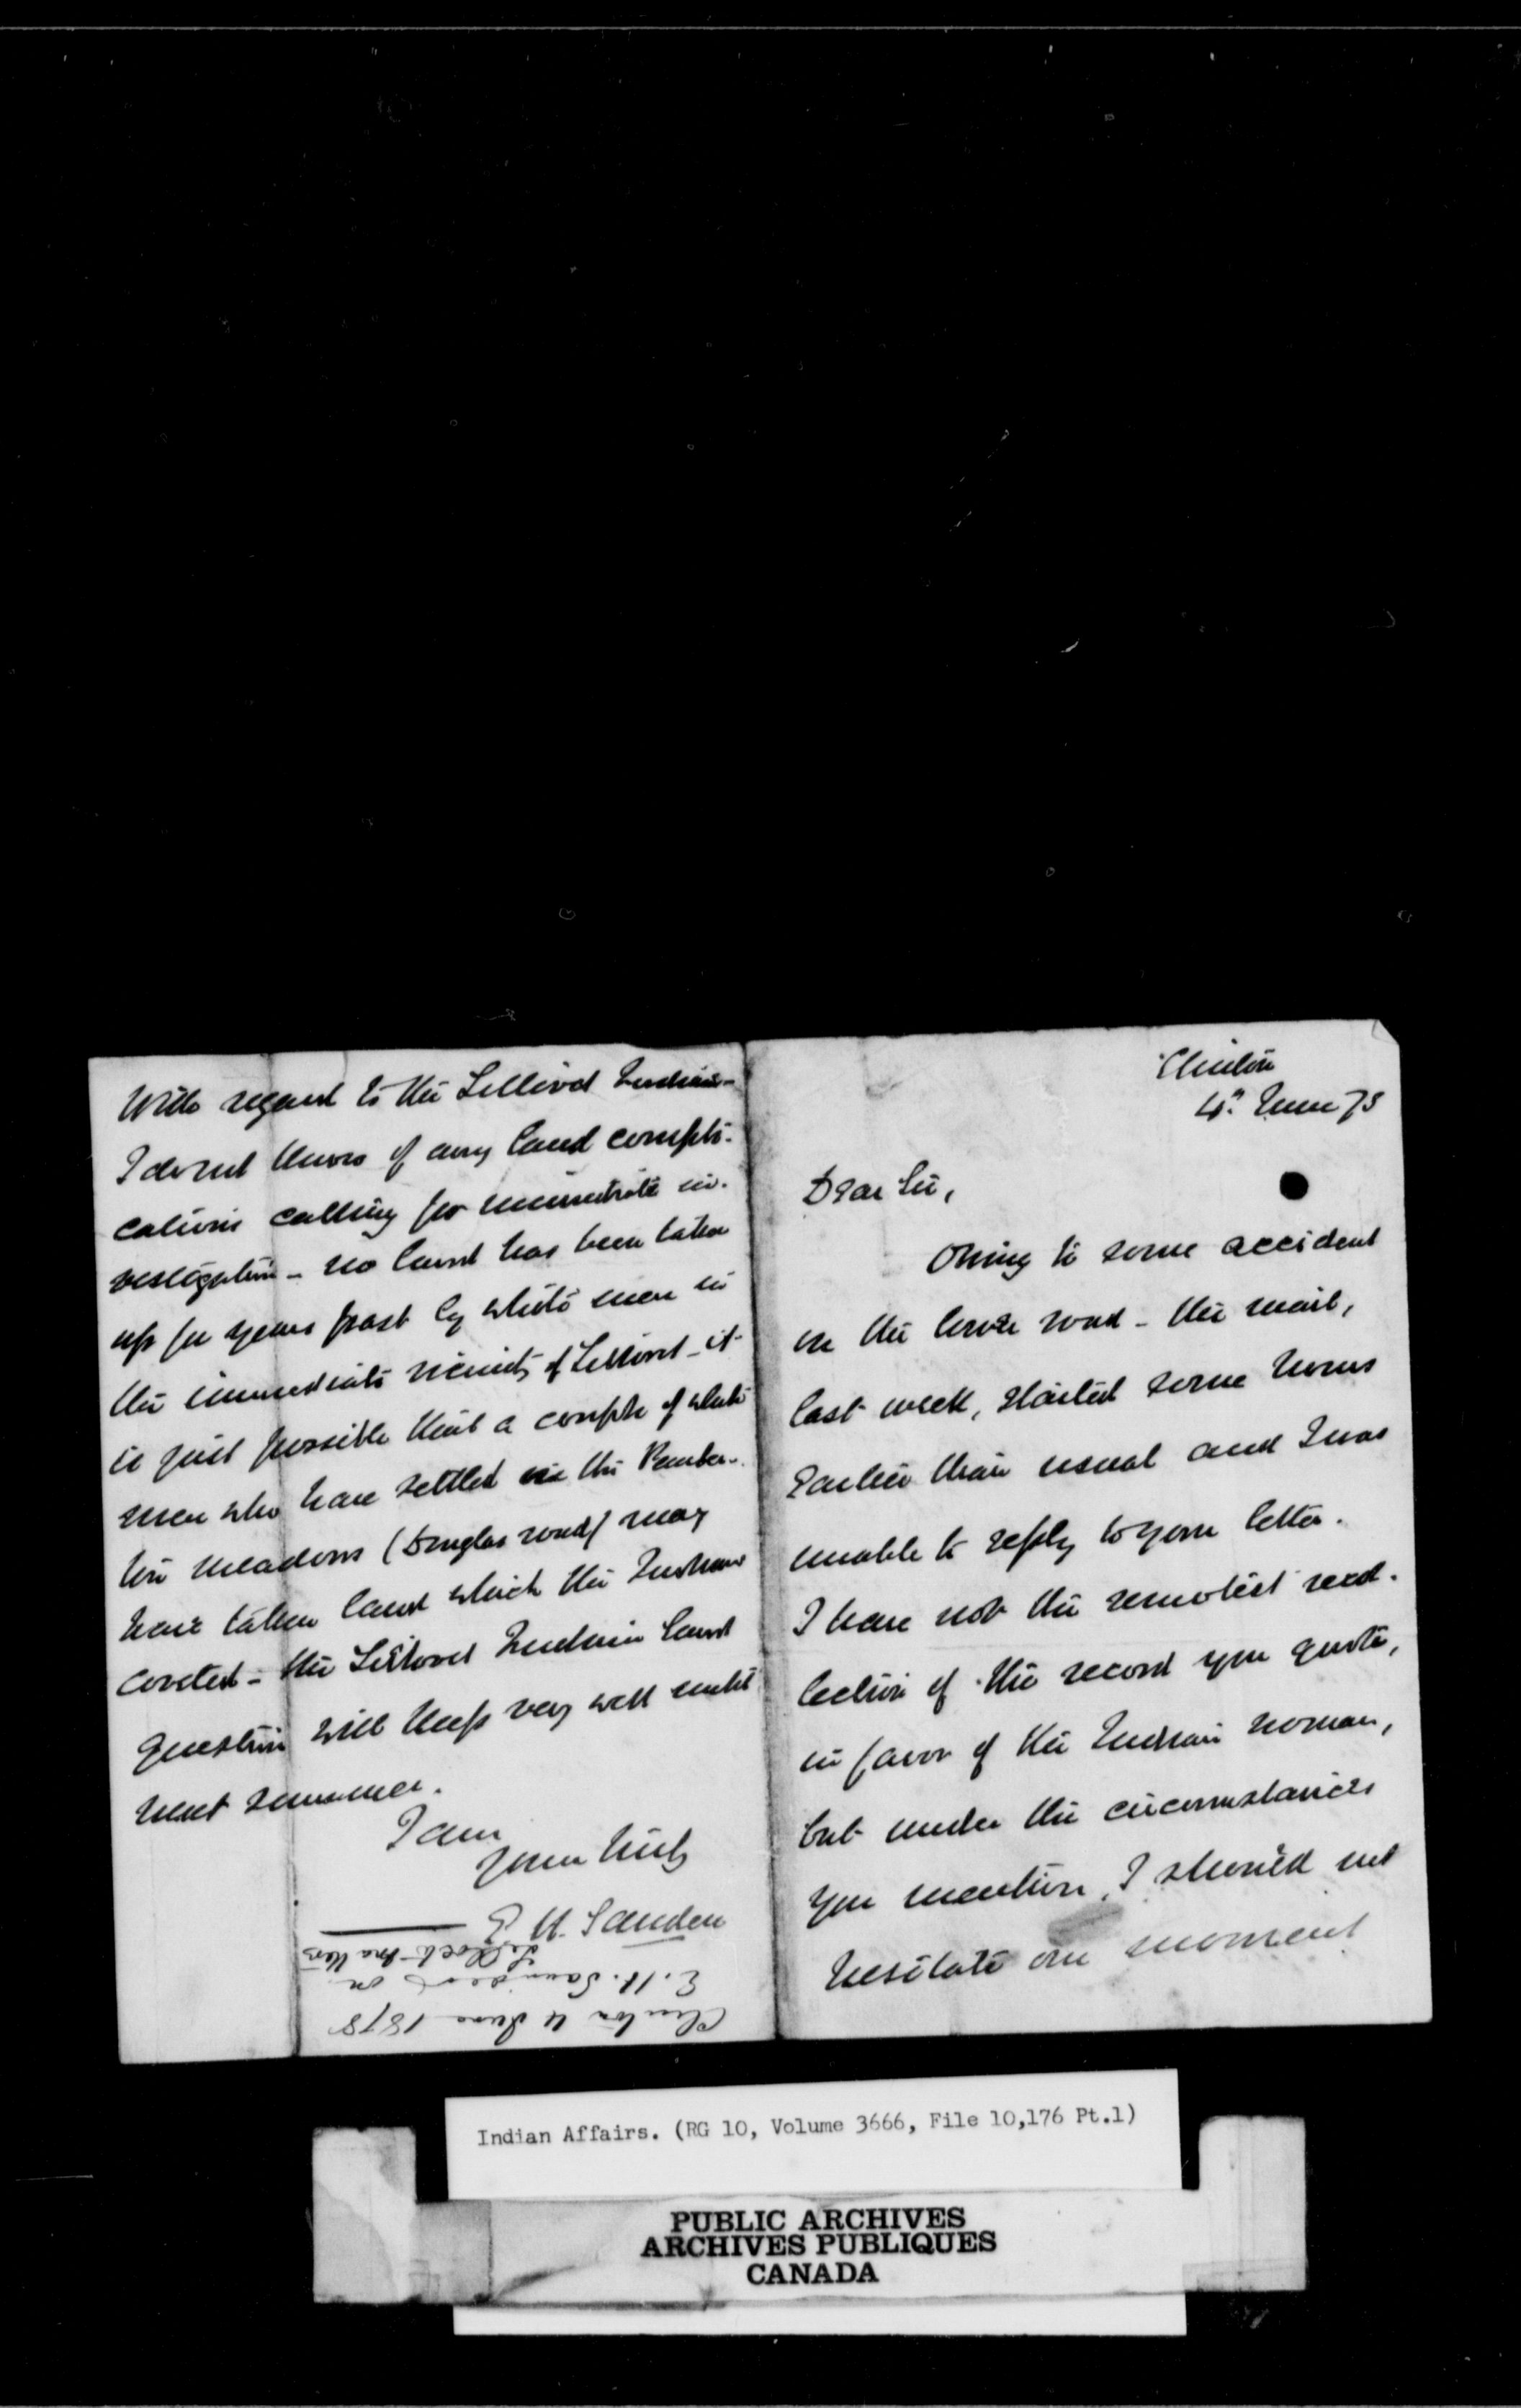 Clinton
4th June 78
Dear Sir,
Owing to some accident
on the lower road - the mail,
last week, started some hours
earlier than usual and I was
unable to reply to your letter.
I have not the remotest recol-
lection of the record you quote,
in favor of the Indian woman,
but under the circumstances
you mention, I should not
hesitate one moment
With regard to the Lillooet Indians -
I do not know of any land compli-
cations calling for immediate in-
vestigation - no land has been taken
up for years past by white men in
the immediate vicinity of Lillooet - it
is just possible that a couple of white
men who have settled in the Pember-
ton meadows (Douglas road) may
have taken land which the Indians
coveted - the Lillooet Indian land
question will keep very well until
next summer.
I am
Yours truly
E H. Sanders
Clinton 4 June 1878
E. H. Sanders on
matters
Indian Affairs. (RG 10, Volume 3666, File 10,176 Pt.1)
PUBLIC ARCHIVES
ARCHIVES PUBLIQUES
CANADA